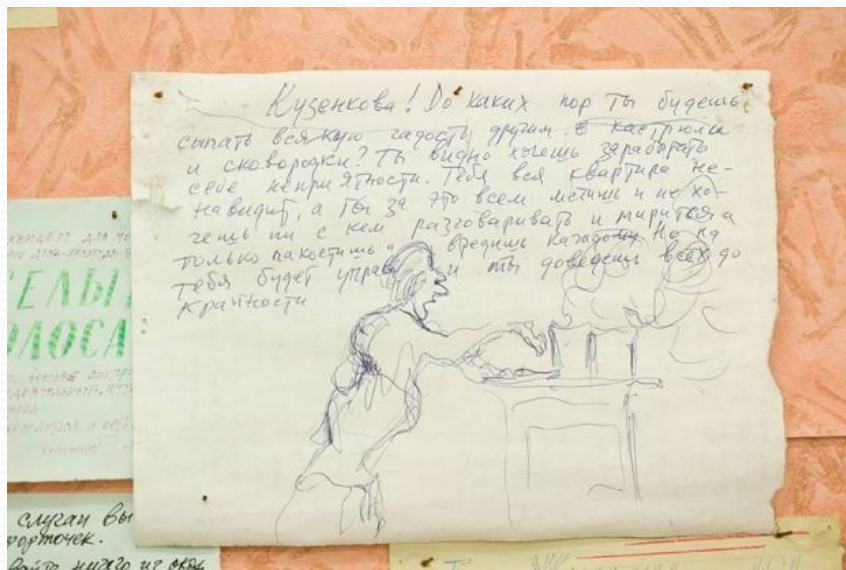 Кузенкова! До каких пор ты будешь
сыпать всякую гадость другим в кастрюли
и сковородки? Ты видно хочешь заработать
себе неприятности. Тебя вся квартира не-
навидит, а ты за это всем мстишь и не хо-
чешь ни с кем разговаривать и мириться а
только пакостишь и вредишь каждому Но на
тебя будет управа и ты доведешь всех до
крайности
СЕЛЫ
ОЛОСА
случаи вы
форточек.
вайте ничего из окон